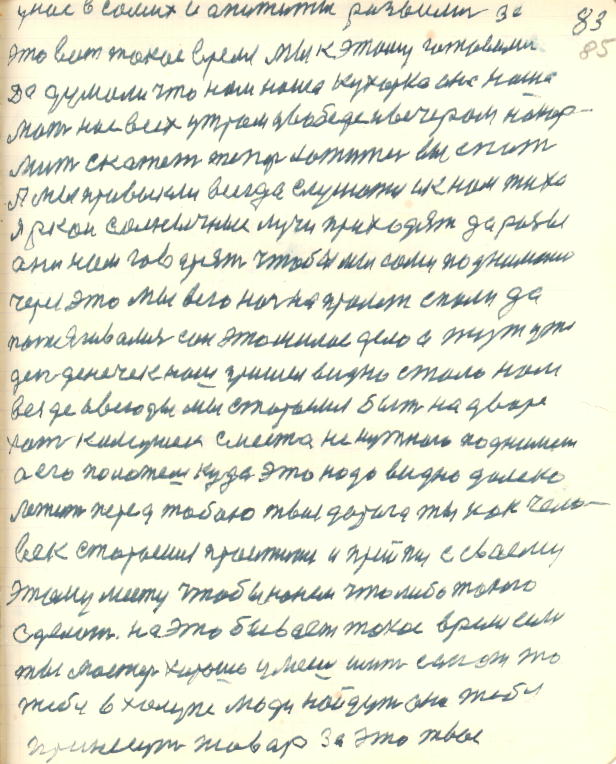 у нас в самих и апитити развили за 83
85
это вот такое время мы к этому готовили
да думали что нам наша кухарка она наша
мат нас всех утром в обеде и вечером накор-
мит скажет тепер хотите вы спит
А мы привыкли всегда слушати и к нам тиха
яркои солнычние лучи приходят да разы
ани нам говорят чтобы мы сами поднимали
через это мы всю ноч на пролот спали да
потягивалис сон это милое дело а тут уже
ден денечек наш пришел видно стало нам
везде а всегды мы старании быт на дворе
хот камушек с места не нужного поднимем
а его положем куда это надо видно далеко
лежит перед тобою твоя дарога ты как чело-
век старысия простити и прийти с своему
этому месту чтобы нанем что либо такого
сделат. на это бывает такое время если
ты мастер хорошо умееш шит сапаги то
тебя в халупе люди найдут они тебе
принесут товар за это твое